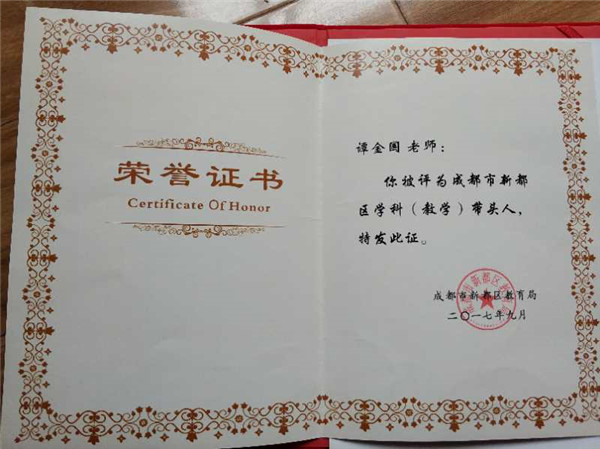 荣誉证书
Certificate Of Honor
谭金国 老师：
你被评为成都市新都
区学科（教学）带头人，
特发此证。
成都市新都区教育局
二〇一七年九月